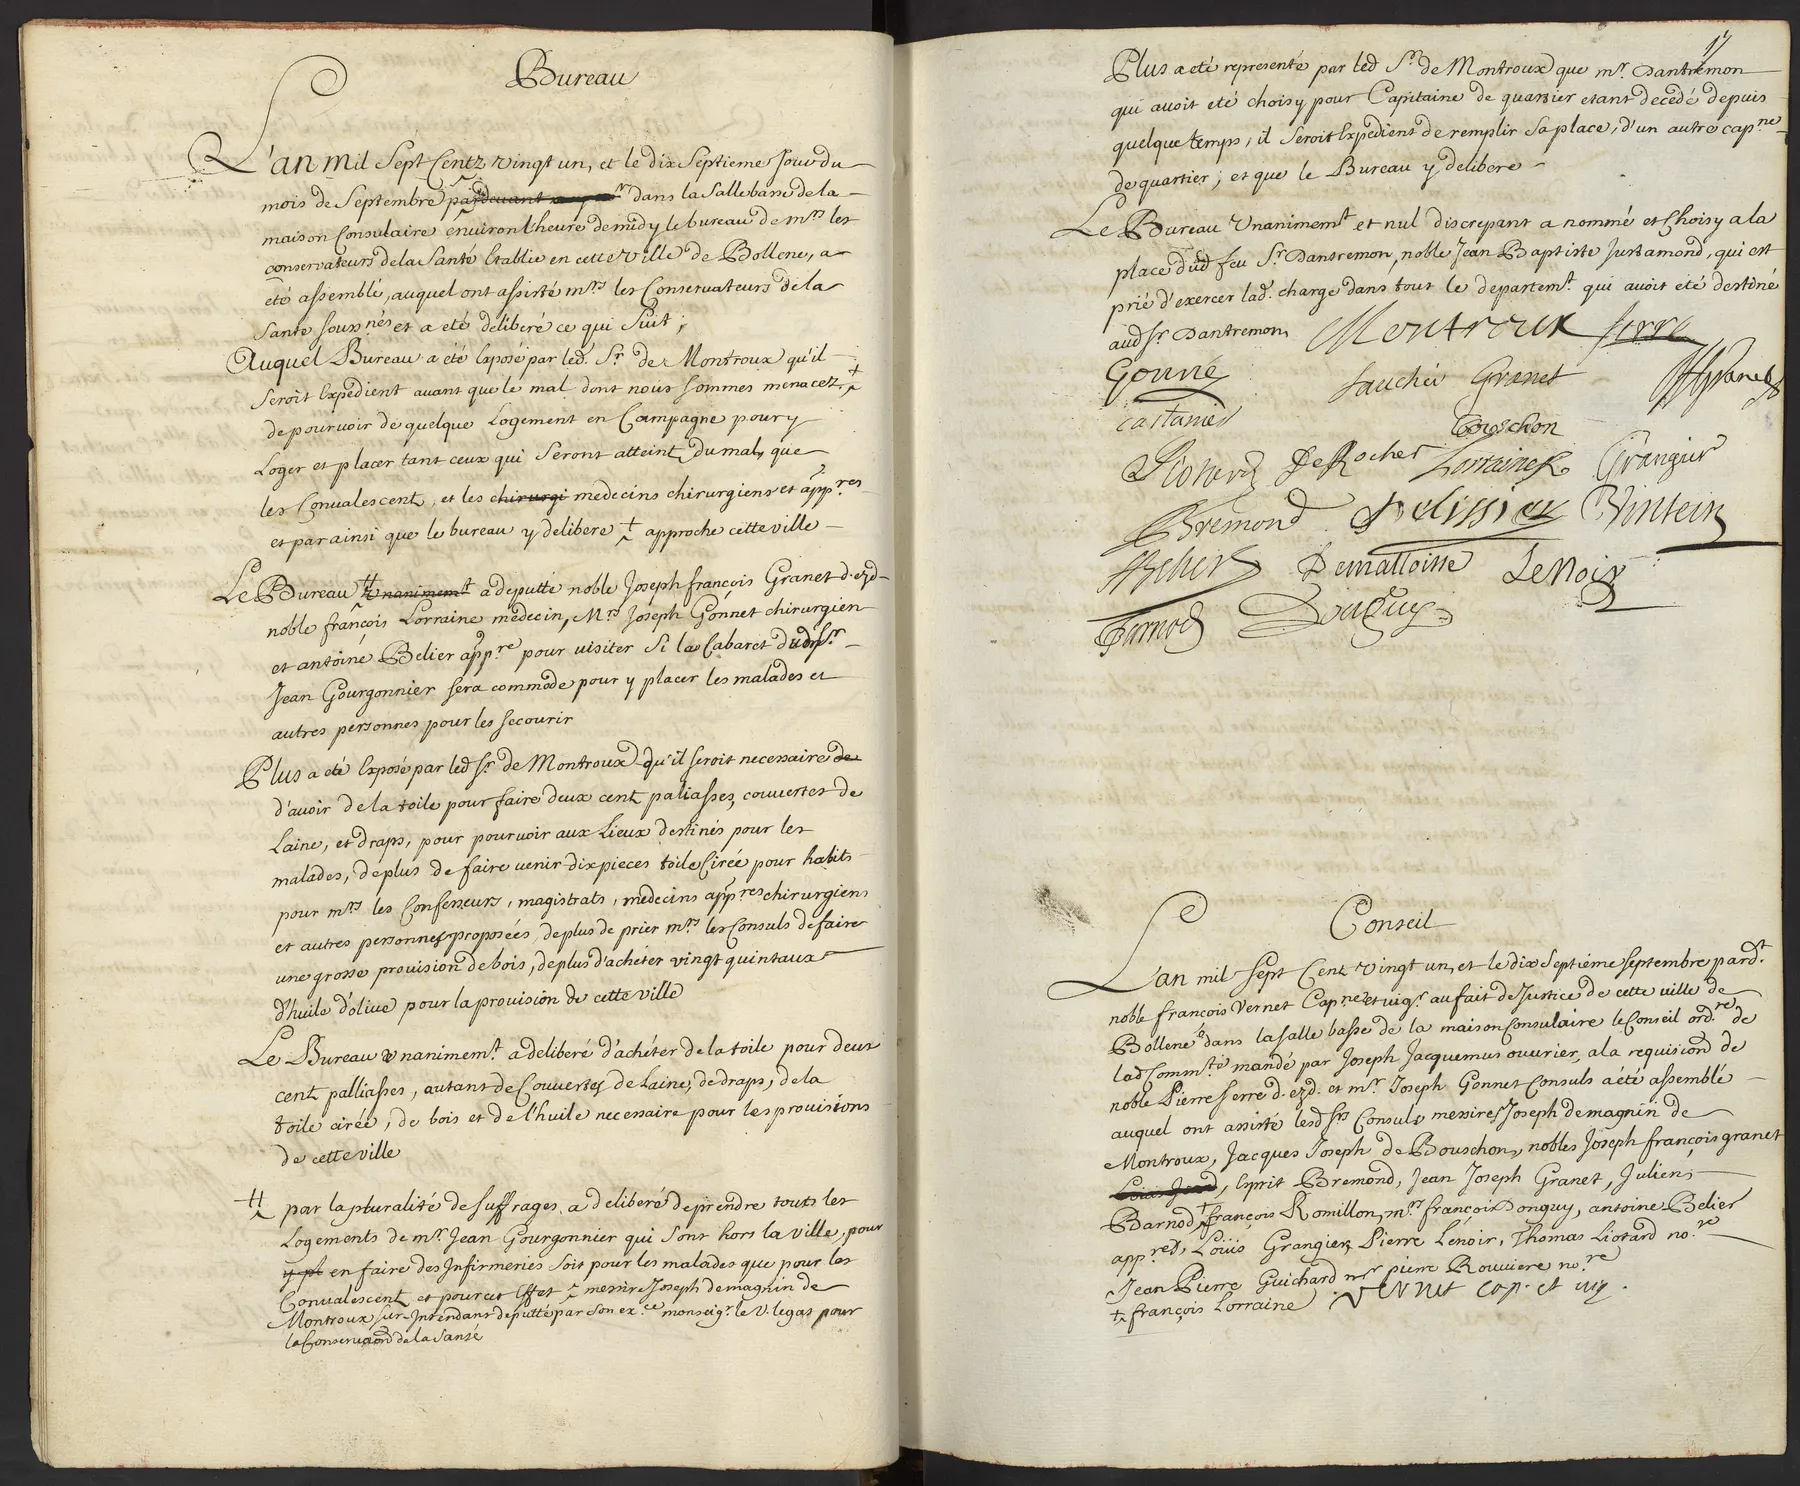 Bureau
L'an mil Sept Centz vingt un, et le dix Septieme Jour du
mois de Septembre pardevant dans la Salle basse de la
maison Consulaire environ l'heure de midy le bureau de mrs les
conservateurs de la Santé Etablie en cette ville de Bollene, a
eté assemblé, auquel ont assisté mrs les Conservateurs de la
Santé soussnés et a eté deliberé ce qui suit;
Auquel Bureau a été Exposé par led. Sr. de Montroux qu'il
seroit Expedient avant que le mal dont nous sommes menacez +
de pourvoir de quelque Logement en Campagne pour y
Loger et placer tant ceux qui seront atteint du mal, que
les Convalescent, et les chirurgi medecins chirurgiens et appres
et par ainsi que le bureau y delibere + approche cette ville
Le Bureau # unanimemt a deputté noble Joseph françois Granet d. ezd
noble françois Lorraine medecin, Mre Joseph Gonnet chirurgien
et antoine Belier appre pour visiter si la Cabaret dudit Sr
Jean Gourgonnier sera commode pour y placer les malades et
autres personnes pour les secourir
Plus a eté Exposé par led Sr de Montroux qu'il seroit necessaire de
d'avoir de la toile pour faire deux cent paliasses, couvertes de
Laine, et draps, pour pourvoir aux Lieux destinés pour les
malades, de plus de faire venir dix pieces toile Cirée pour habits
pour mrs les Confesseurs, magistrats, medecins appres chirurgiens
et autres personnes proposées, de plus de prier mrs les Consuls de faire
une grosse provision de bois, de plus d'achéter vingt quintaux
d'huile d'olive pour la provision de cette ville
Le Bureau unanimemt a deliberé d'achéter de la toile pour deux
cent palliasses, autant de Couvertes de Laine, de draps, de la
toile cirée, de bois et de l'huile necessaire pour les provisions
de cette ville
# par la pluralité de suffrages a deliberé de prendre tous les
Logements de mr. Jean Gourgonnier qui sont hors la ville, pour
y pl en faire des Infirmeries soit pour les malades que pour les
Convalescent et pour cet Effet messire Joseph demagnin de
Montroux sur-Intendant deputté par son exce monseigr. le V. legat pour
la Conservaon de la Santé
17
Plus a eté representé par led Sr de Montroux que mr. Dantremon
qui avoit eté choisy pour Capitaine de quartier etant decedé depuis
quelque temps, il seroit Expedient de remplir sa place, d'un autre capne
de quartier; et que le Bureau y delibere
Le Bureau Unanimemt et nul discrepant a nommé et Choisy a la
place dud feu Sr Dantremon, noble Jean Baptiste Justamond, qui est
prié d'exercer lad. charge dans tout le departemt. qui avoit été destiné
aud Sr. Dantremon, Montroux serre
Gonné fauchéi Granet JfGranet
castanier Bouschon
Liotard DeRocher Lorraine Grangier
Bremond Pelissier Vintein
Belier Demattoisse Lenoir
Barnod Donguy
Conseil
L'an mil sept Cent vingt un, et le dix septiéme septembre pardt.
noble françois Vernet Capne et vigr. au fait de Justice de cette ville de
Bollene dans la salle basse de la maison Consulaire le Conseil ordre de
lad Commté mandé par Joseph Jacquemus ouvrier, a la requision de
noble Pierre serre d. ezd. et mr Joseph Gonnet Consuls a été assemblé
auquel ont assisté lesd srs Consuls messires Joseph demagnin de
Montroux, Jacques Joseph de Bouschon, nobles Joseph françois granet
Esprit Bremond, Jean Joseph Granet, Julien
Barnod, + françois Romillon, mrs françois Donguy, antoine Belier
appres, Loüis Grangier, Pierre Lenoir, Thomas Liotard nore
Jean Pierre Guichard mre pierre Rouviere nore
+ françois Lorraine Vernet cap. et vig.